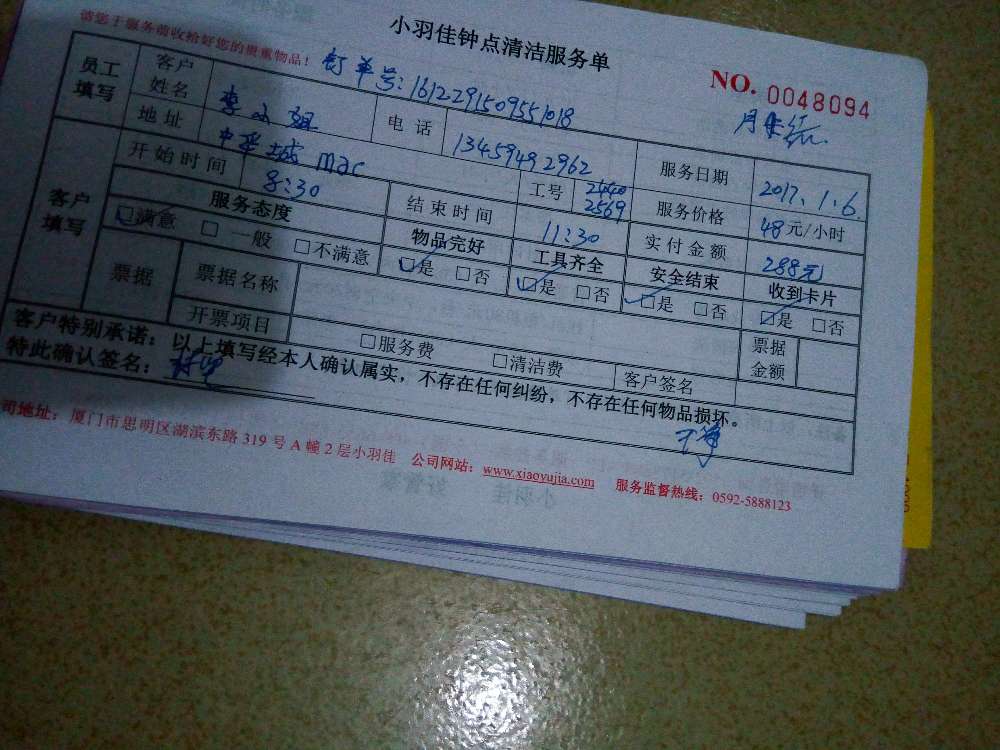 小羽佳钟点清洁服务单
请您于服务前收拾好您的贵重物品！
订单号：1612291509551018
NO. 0048094
月卡
员工填写 客户姓名 李小姐 电话 13459492962 服务日期 2017.1.6
地址 中华城 mac 工号 2440 2569 服务价格 48元/小时
客户填写 开始时间 8:30 结束时间 11:30 实付金额 288元
服务态度 物品完好 工具齐全 安全结束 收到卡片
☑满意 □一般 □不满意 ☑是 □否 ☑是 □否 ☑是 □否 ☑是 □否
票据 票据名称 票据金额
开票项目 □服务费 □清洁费 客户签名
客户特别承诺：以上填写经本人确认属实，不存在任何纠纷，不存在任何物品损坏。
特此确认签名：
司地址：厦门市思明区湖滨东路 319 号 A 幢 2 层小羽佳 公司网站：www.xiaoyujia.com 服务监督热线：0592-5888123